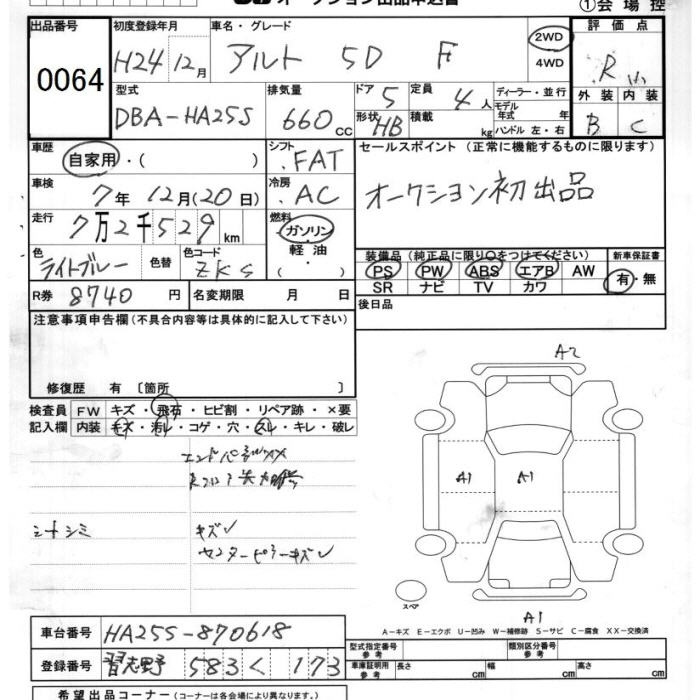 オークション出品申込書
①会場控
出品番号 初度登録年月 車名・グレード 評価点
0064 H24 12月 アルト 5D F 2WD 4WD R
型式 排気量 ドア 定員 ディーラー・並行 外装 内装
DBA-HA25S 660cc 5 4人 モデル年式 年 B C
形状 HB 積載 kg ハンドル 左・右
車歴 自家用・( ) シフト FAT セールスポイント (正常に機能するものに限ります)
車検 7年 12月(20日) 冷房 AC オークション初出品
走行 7万2千529km 燃料 ガソリン・軽油・
色 ライトブルー 色替 色コード ZKS 装備品 (純正品に限り○をつけてください) 新車保証書
PS PW ABS エアB AW 有・無
SR ナビ TV カワ
R券 8740円 名変期限 月 日 後日品
注意事項申告欄 (不具合内容等は具体的に記入して下さい)
修復歴 有 [箇所 ]
A2
検査員 FW キズ・飛石・ヒビ割・リペア跡・×要
記入欄 内装 キズ・汚レ・コゲ・穴・スレ・キレ・破レ
A1 A1
シートシミ キズ
センターピラーキズ
スペア
A1
A-キズ E-エクボ U-凹み W-補修跡 S-サビ C-腐食 XX-交換済
車台番号 HA25S-870618
型式指定番号 参考 類別区分番号 参考
登録番号 習志野 583 く 173
車庫証明用 参考 長さ cm 幅 cm 高さ cm
希望出品コーナー (コーナーは各会場により異なります。)